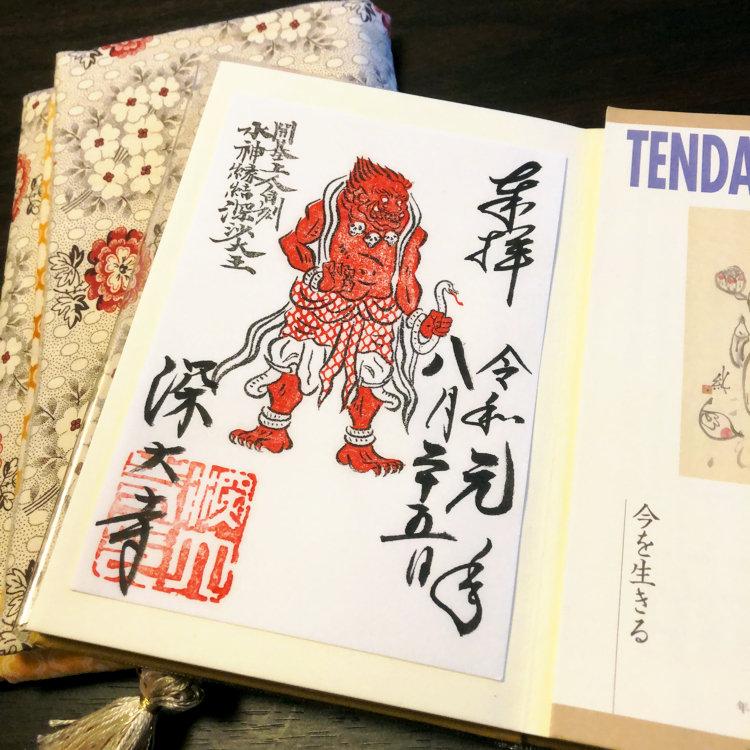 奉拝
令和元年
八月二十五日
開基上人自刻
水神縁結深沙大王
深大寺
TENDA
今を生きる